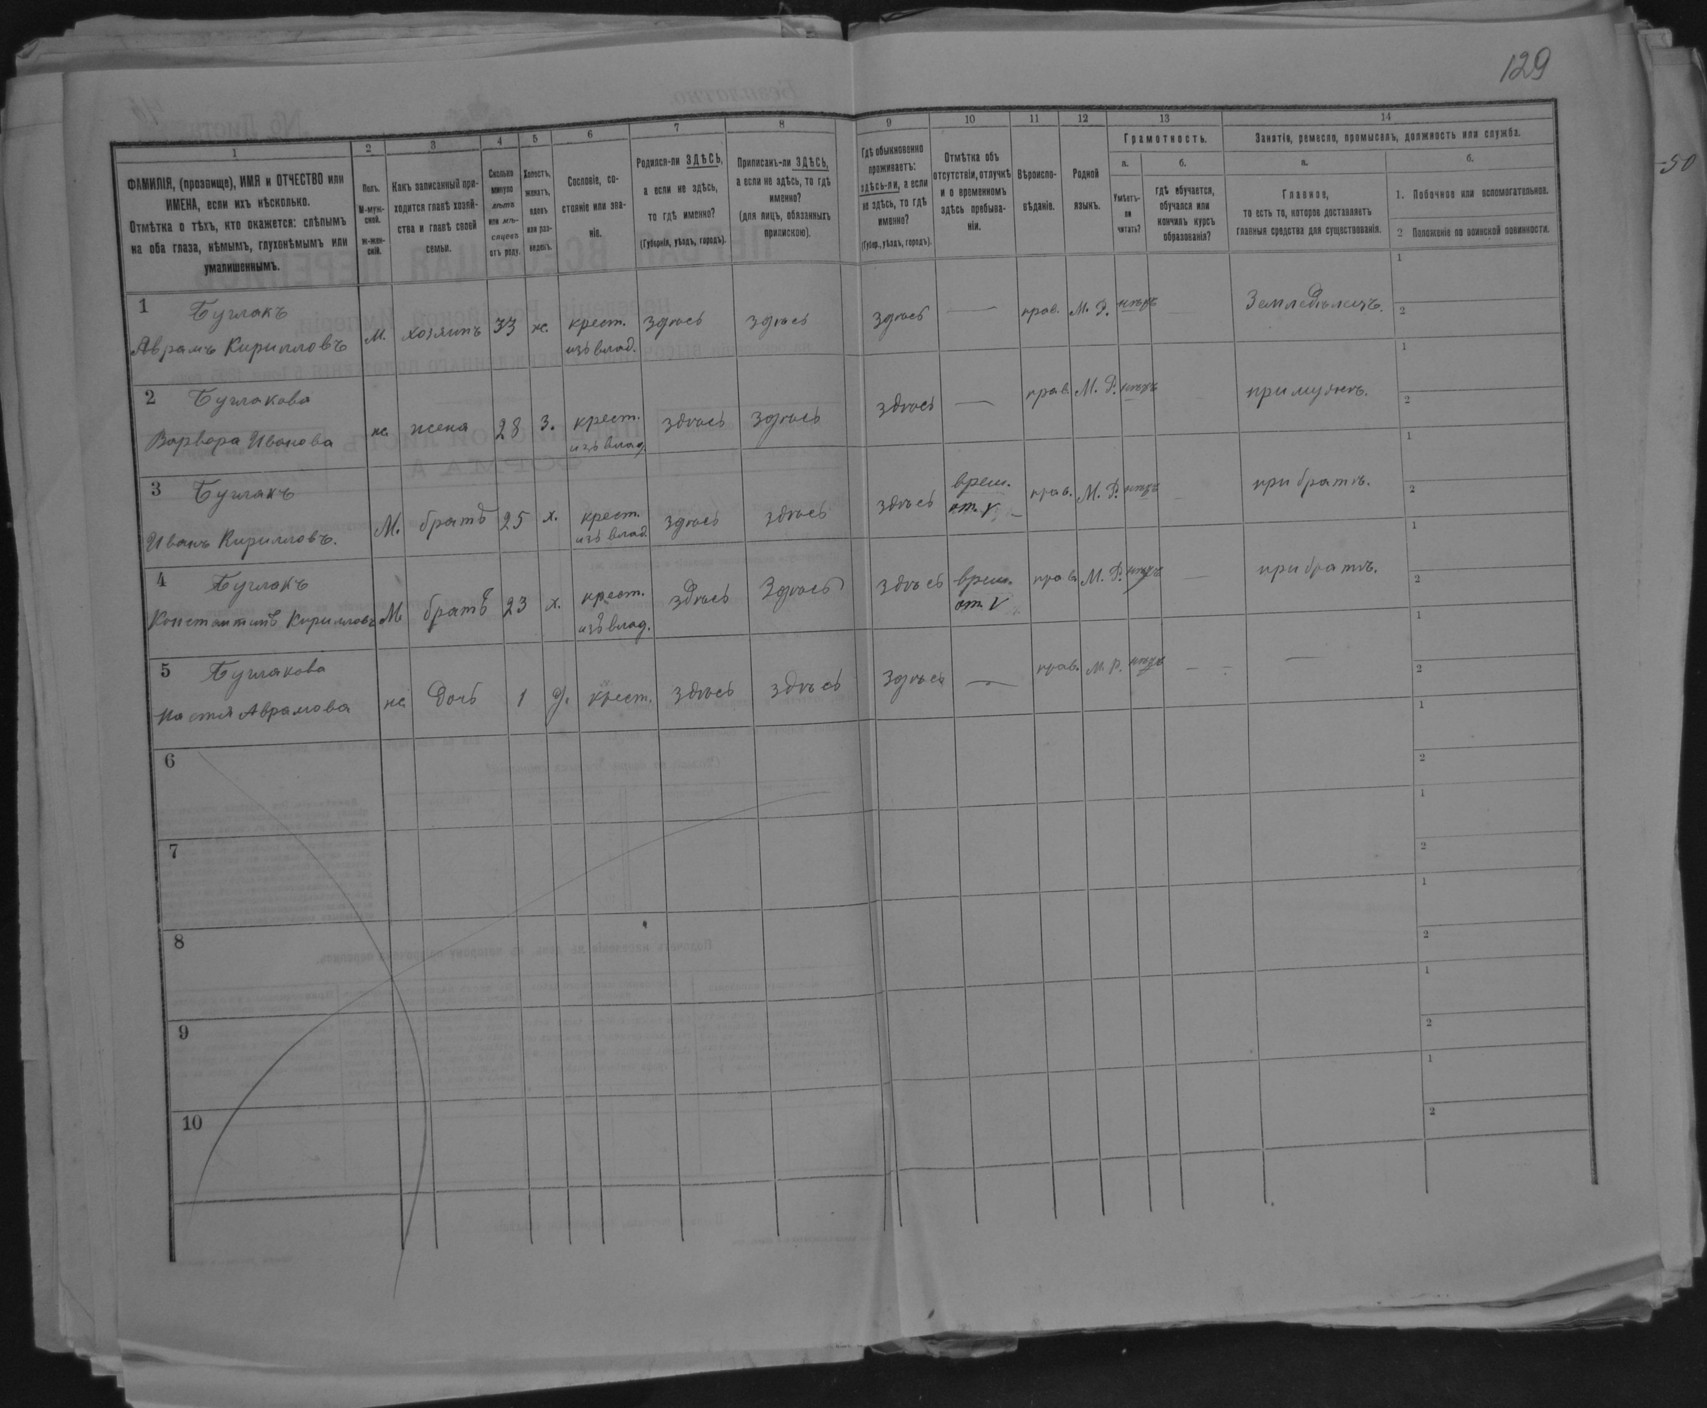 129
50
1
2
3
4
5
6
7
8
9
10
11
12
13
14
ФАМИЛІЯ, (прозвище), ИМЯ и ОТЧЕСТВО или
ИМЕНА, если ихъ нѣсколько.
Отмѣтка о тѣхъ, кто окажется: слѣпымъ
на оба глаза, нѣмымъ, глухонѣмымъ или
умалишеннымъ.
Полъ.
М-муж-
ской.
ж-жен-
скій.
Какъ записанный при-
ходится главѣ хозяй-
ства и главѣ своей
семьи.
Сколько
минуло
лѣтъ
или мѣ-
сяцевъ
отъ роду.
Холостъ,
женатъ,
вдовъ
или раз-
веденъ.
Сословіе, со-
стояніе или зва-
ніе.
Родился-ли ЗДѢСЬ,
а если не здѣсь,
то гдѣ именно?
(Губернія, уѣздъ, городъ).
Приписанъ-ли ЗДѢСЬ,
а если не здѣсь, то гдѣ
именно?
(для лицъ, обязанныхъ
припискою).
Гдѣ обыкновенно
проживаетъ:
здѣсь-ли, а если
не здѣсь, то гдѣ
именно?
(Губер., уѣздъ, городъ).
Отмѣтка объ
отсутствіи, отлучкѣ
и о временномъ
здѣсь пребыва-
ніи.
Вѣроиспо-
вѣданіе.
Родной
языкъ.
Грамотность.
а.
Умѣетъ-
ли
читать?
б.
гдѣ обучается,
обучался или
кончилъ курсъ
образованія?
Занятіе, ремесло, промыселъ, должность или служба.
а.
Главное,
то есть то, которое доставляетъ
главныя средства для существованія.
б.
1. Побочное или вспомогательное.
2 Положеніе по воинской повинности.
1 Буглакъ
Аврамъ Кирилловъ м. хозяинъ 33 ж. крест. изъ влад. здѣсь здѣсь здѣсь — прав. М. Р. нѣтъ Земледѣлецъ. 1 2
2 Буглакова
Варвара Иванова ж. жена 28 з. крест. изъ влад. здѣсь здѣсь здѣсь — прав. М. Р. нѣтъ при мужѣ. 1 2
3 Буглакъ
Иванъ Кирилловъ. М. братъ 25 х. крест. изъ влад. здѣсь здѣсь здѣсь врем. от. V — прав. М. Р. нѣтъ при братѣ. 1 2
4 Буглакъ
Константинъ Кирилловъ М братъ 23 х. крест. изъ влад. здѣсь Здѣсь здѣсь врем. от. V прав. М. Р. нѣтъ — при братѣ. 1 2
5 Буглакова
Настя Аврамова ж. дочь 1 д. крест. здѣсь здѣсь здѣсь — прав. М. Р. нѣтъ — — — 1 2
6 1 2
7 1 2
8 1 2
9 1 2
10 1 2